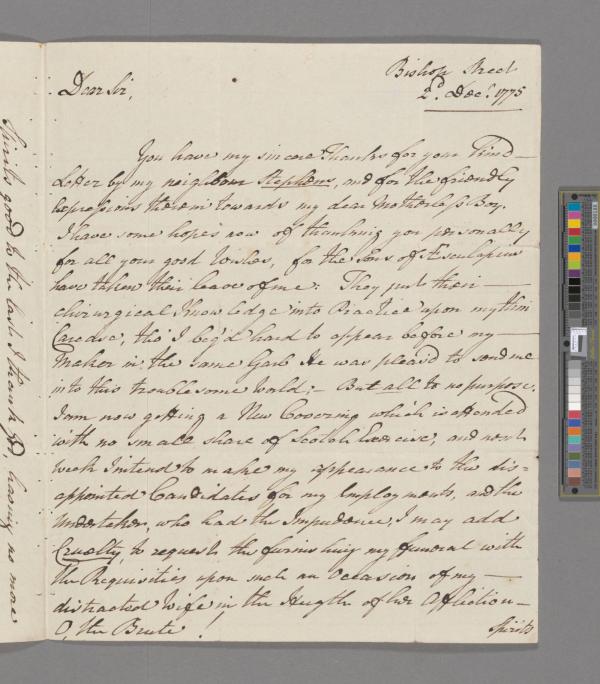 Bishop Street
2d. Decr. 1775
Dear Sir,
You have my sincere Thanks for your Kind
Letter by my neighbour Stephens, and for the friendly
Expressions therein towards my dear Motherless Boy.
I have some hopes now of thanking you personally
for all your good Wishes, for the Sons of Esculapius
have taken their leave of me: They put their
chirurgical Knowledge into Practice upon my thin
Carcase, tho' I beg'd hard to appear before my
Maker in the same Garb He was pleas'd to send me
into this troublesome World; - But all to no purpose.
I am now getting a New Covering which is attended
with no small share of Scotch Exercise, and next
week I intend to make my appearance to the dis=
appointed Candidates for my Employments, and the
Undertaker, who had the Impudence, I may add
Cruelty, to request the furnishing my funeral with
the Requisities upon such an Occasion of my
distracted Wife in the Heigth of her Affliction
O, the Brute!
Spirits
Spirits good to the last I thank God, having no more